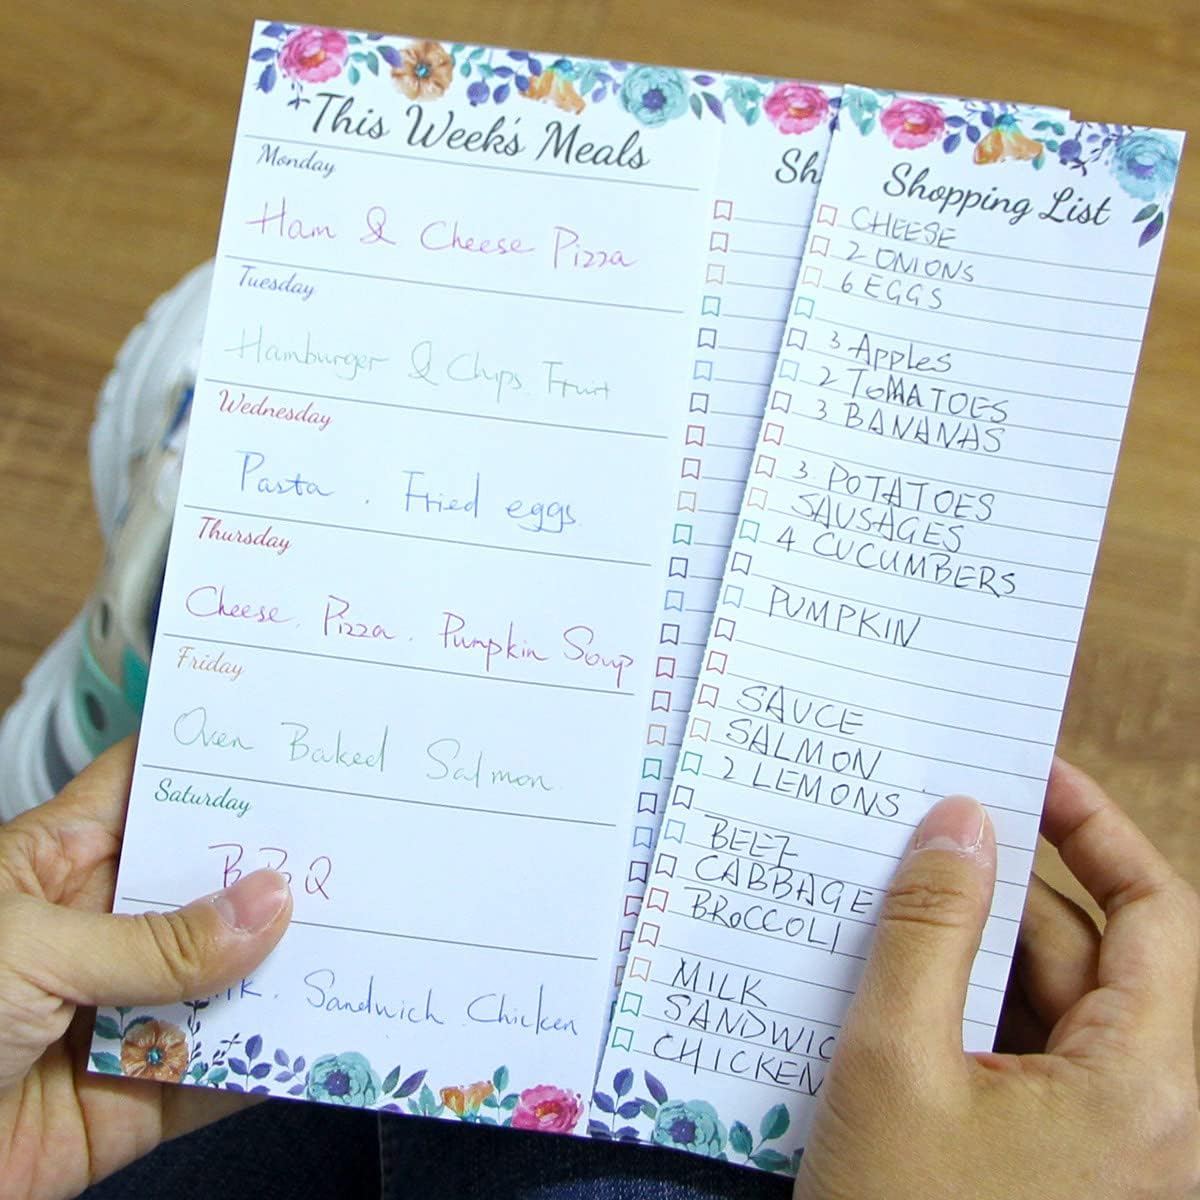 This Week's Meals
Monday
Ham & Cheese Pizza
Tuesday
Hamburger & Chips. Fruit
Wednesday
Pasta . Fried eggs
Thursday
Cheese. Pizza. Pumpkin Soup
Friday
Oven Baked Salmon
Saturday
BBQ
Sandwich Chicken
Sh
Shopping List
CHEESE
2 ONIONS
6 EGGS
3 Apples
2 ToMATOES
3 BANANAS
3. POTATOES
SAUSAGES
4 CUCUMBERS
PUMPKIN
SAUCE
SALMON
2 LEMONS
BEEZ
CABBAGE
BRoCCOLI
MILK
SANDWIC
CHICKEN